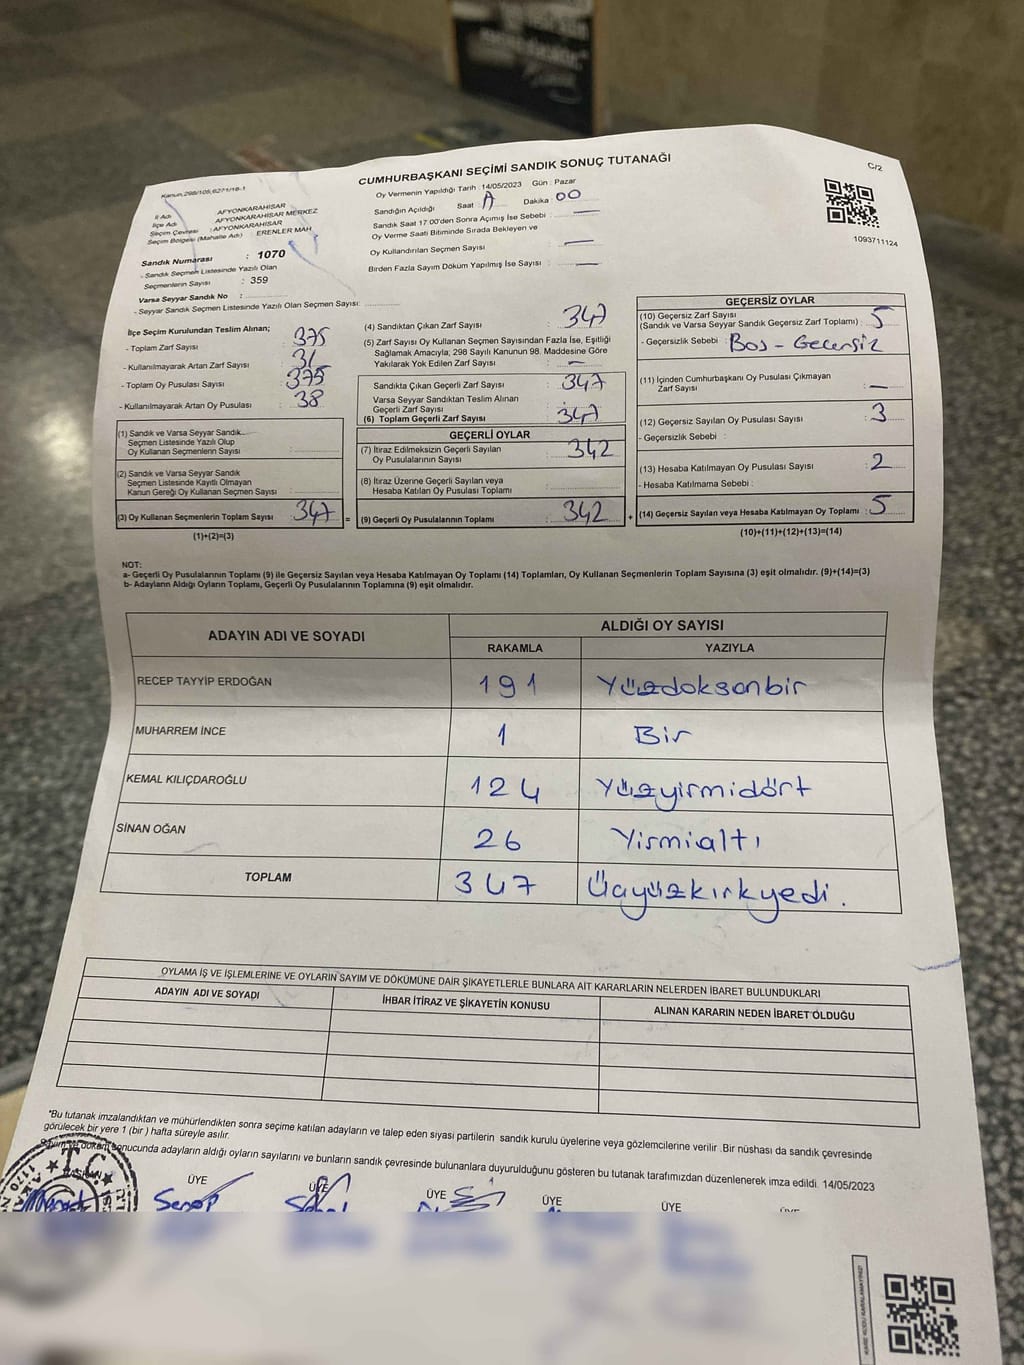 CUMHURBAŞKANI SEÇİMİ SANDIK SONUÇ TUTANAĞI
C/2
Kanun,298/105,6271/18-1
İl Adı AFYONKARAHİSAR
İlçe Adı AFYONKARAHİSAR MERKEZ
Seçim Çevresi :AFYONKARAHİSAR
Seçim Bölgesi (Mahalle Adı) : ERENLER MAH
Sandık Numarası : 1070
- Sandık Seçmen Listesinde Yazılı Olan
Seçmenlerin Sayısı : 359
Varsa Seyyar Sandık No :
- Seyyar Sandık Seçmen Listesinde Yazılı Olan Seçmen Sayısı:
Oy Vermenin Yapıldığı Tarih :14/05/2023 Gün : Pazar
Sandığın Açıldığı Saat A Dakika 00
Sandık Saat 17:00'den Sonra Açımış İse Sebebi : —
Oy Verme Saati Bitiminde Sırada Bekleyen ve
Oy Kullandırılan Seçmen Sayısı : —
Birden Fazla Sayım Döküm Yapılmış İse Sayısı : —
1093711124
İlçe Seçim Kurulundan Teslim Alınan;
- Toplam Zarf Sayısı : 375
- Kullanılmayarak Artan Zarf Sayısı : 31
- Toplam Oy Pusulası Sayısı : 375
- Kullanılmayarak Artan Oy Pusulası : 38
(1) Sandık ve Varsa Seyyar Sandık
Seçmen Listesinde Yazılı Olup
Oy Kullanan Seçmenlerin Sayısı :
(2) Sandık ve Varsa Seyyar Sandık
Seçmen Listesinde Kayıtlı Olmayan
Kanun Gereği Oy Kullanan Seçmen Sayısı :
(3) Oy Kullanan Seçmenlerin Toplam Sayısı : 347 =
(1)+(2)=(3)
(4) Sandıktan Çıkan Zarf Sayısı : 347
(5) Zarf Sayısı Oy Kullanan Seçmen Sayısından Fazla İse, Eşitliği
Sağlamak Amacıyla; 298 Sayılı Kanunun 98. Maddesine Göre
Yakılarak Yok Edilen Zarf Sayısı : —
Sandıkta Çıkan Geçerli Zarf Sayısı : 347
Varsa Seyyar Sandıktan Teslim Alınan
Geçerli Zarf Sayısı :
(6) Toplam Geçerli Zarf Sayısı : 347
GEÇERLİ OYLAR
(7) İtiraz Edilmeksizin Geçerli Sayılan
Oy Pusulalarının Sayısı : 342
(8) İtiraz Üzerine Geçerli Sayılan veya
Hesaba Katılan Oy Pusulası Toplamı :
(9) Geçerli Oy Pusulalarının Toplamı : 342 +
GEÇERSİZ OYLAR
(10) Geçersiz Zarf Sayısı
(Sandık ve Varsa Seyyar Sandık Geçersiz Zarf Toplamı) : 5
- Geçersizlik Sebebi : Boş - Geçersiz
(11) İçinden Cumhurbaşkanı Oy Pusulası Çıkmayan
Zarf Sayısı : —
(12) Geçersiz Sayılan Oy Pusulası Sayısı : 3
- Geçersizlik Sebebi :
(13) Hesaba Katılmayan Oy Pusulası Sayısı : 2
- Hesaba Katılmama Sebebi :
(14) Geçersiz Sayılan veya Hesaba Katılmayan Oy Toplamı : 5
(10)+(11)+(12)+(13)=(14)
NOT:
a- Geçerli Oy Pusulalarının Toplamı (9) ile Geçersiz Sayılan veya Hesaba Katılmayan Oy Toplamı (14) Toplamları, Oy Kullanan Seçmenlerin Toplam Sayısına (3) eşit olmalıdır. (9)+(14)=(3)
b- Adayların Aldığı Oyların Toplamı, Geçerli Oy Pusulalarının Toplamına (9) eşit olmalıdır.
ADAYIN ADI VE SOYADI ALDIĞI OY SAYISI
RAKAMLA YAZIYLA
RECEP TAYYİP ERDOĞAN 191 Yüzdoksanbir
MUHARREM İNCE 1 Bir
KEMAL KILIÇDAROĞLU 124 Yüzyirmidört
SİNAN OĞAN 26 Yirmialtı
TOPLAM 347 Üçyüzkırkyedi.
OYLAMA İŞ VE İŞLEMLERİNE VE OYLARIN SAYIM VE DÖKÜMÜNE DAİR ŞİKAYETLERLE BUNLARA AİT KARARLARIN NELERDEN İBARET BULUNDUKLARI
ADAYIN ADI VE SOYADI İHBAR İTİRAZ VE ŞİKAYETİN KONUSU ALINAN KARARIN NEDEN İBARET OLDUĞU
*Bu tutanak imzalandıktan ve mühürlendikten sonra seçime katılan adayların ve talep eden siyasi partilerin sandık kurulu üyelerine veya gözlemcilerine verilir .Bir nüshası da sandık çevresinde
görülecek bir yere 1 (bir ) hafta süreyle asılır.
sonucunda adayların aldığı oyların sayılarını ve bunların sandık çevresinde bulunanlara duyurulduğunu gösteren bu tutanak tarafımızdan düzenlenerek imza edildi. 14/05/2023
T.C.
ÜYE ÜYE ÜYE ÜYE ÜYE